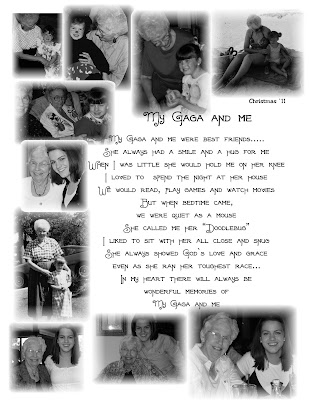 Christmas '11
My Gaga and me
My Gaga and me were best friends.....
She always had a smile and a hug for me
When I was little she would hold me on her knee
I loved to spend the night at her house
We would read, play games and watch movies
But when bedtime came,
we were quiet as a mouse
She called me her "Doodlebug"
I liked to sit with her all close and snug
She always showed God's love and grace
even as she ran her toughest race...
In my heart there will always be
wonderful memories of
My Gaga and me